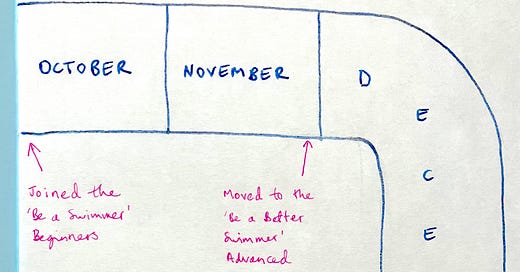 OCTOBER
NOVEMBER
D
E
C
E
Joined the
'Be a Swimmer'
Beginners
Moved to the
'Be a Better
Swimmer'
Advanced